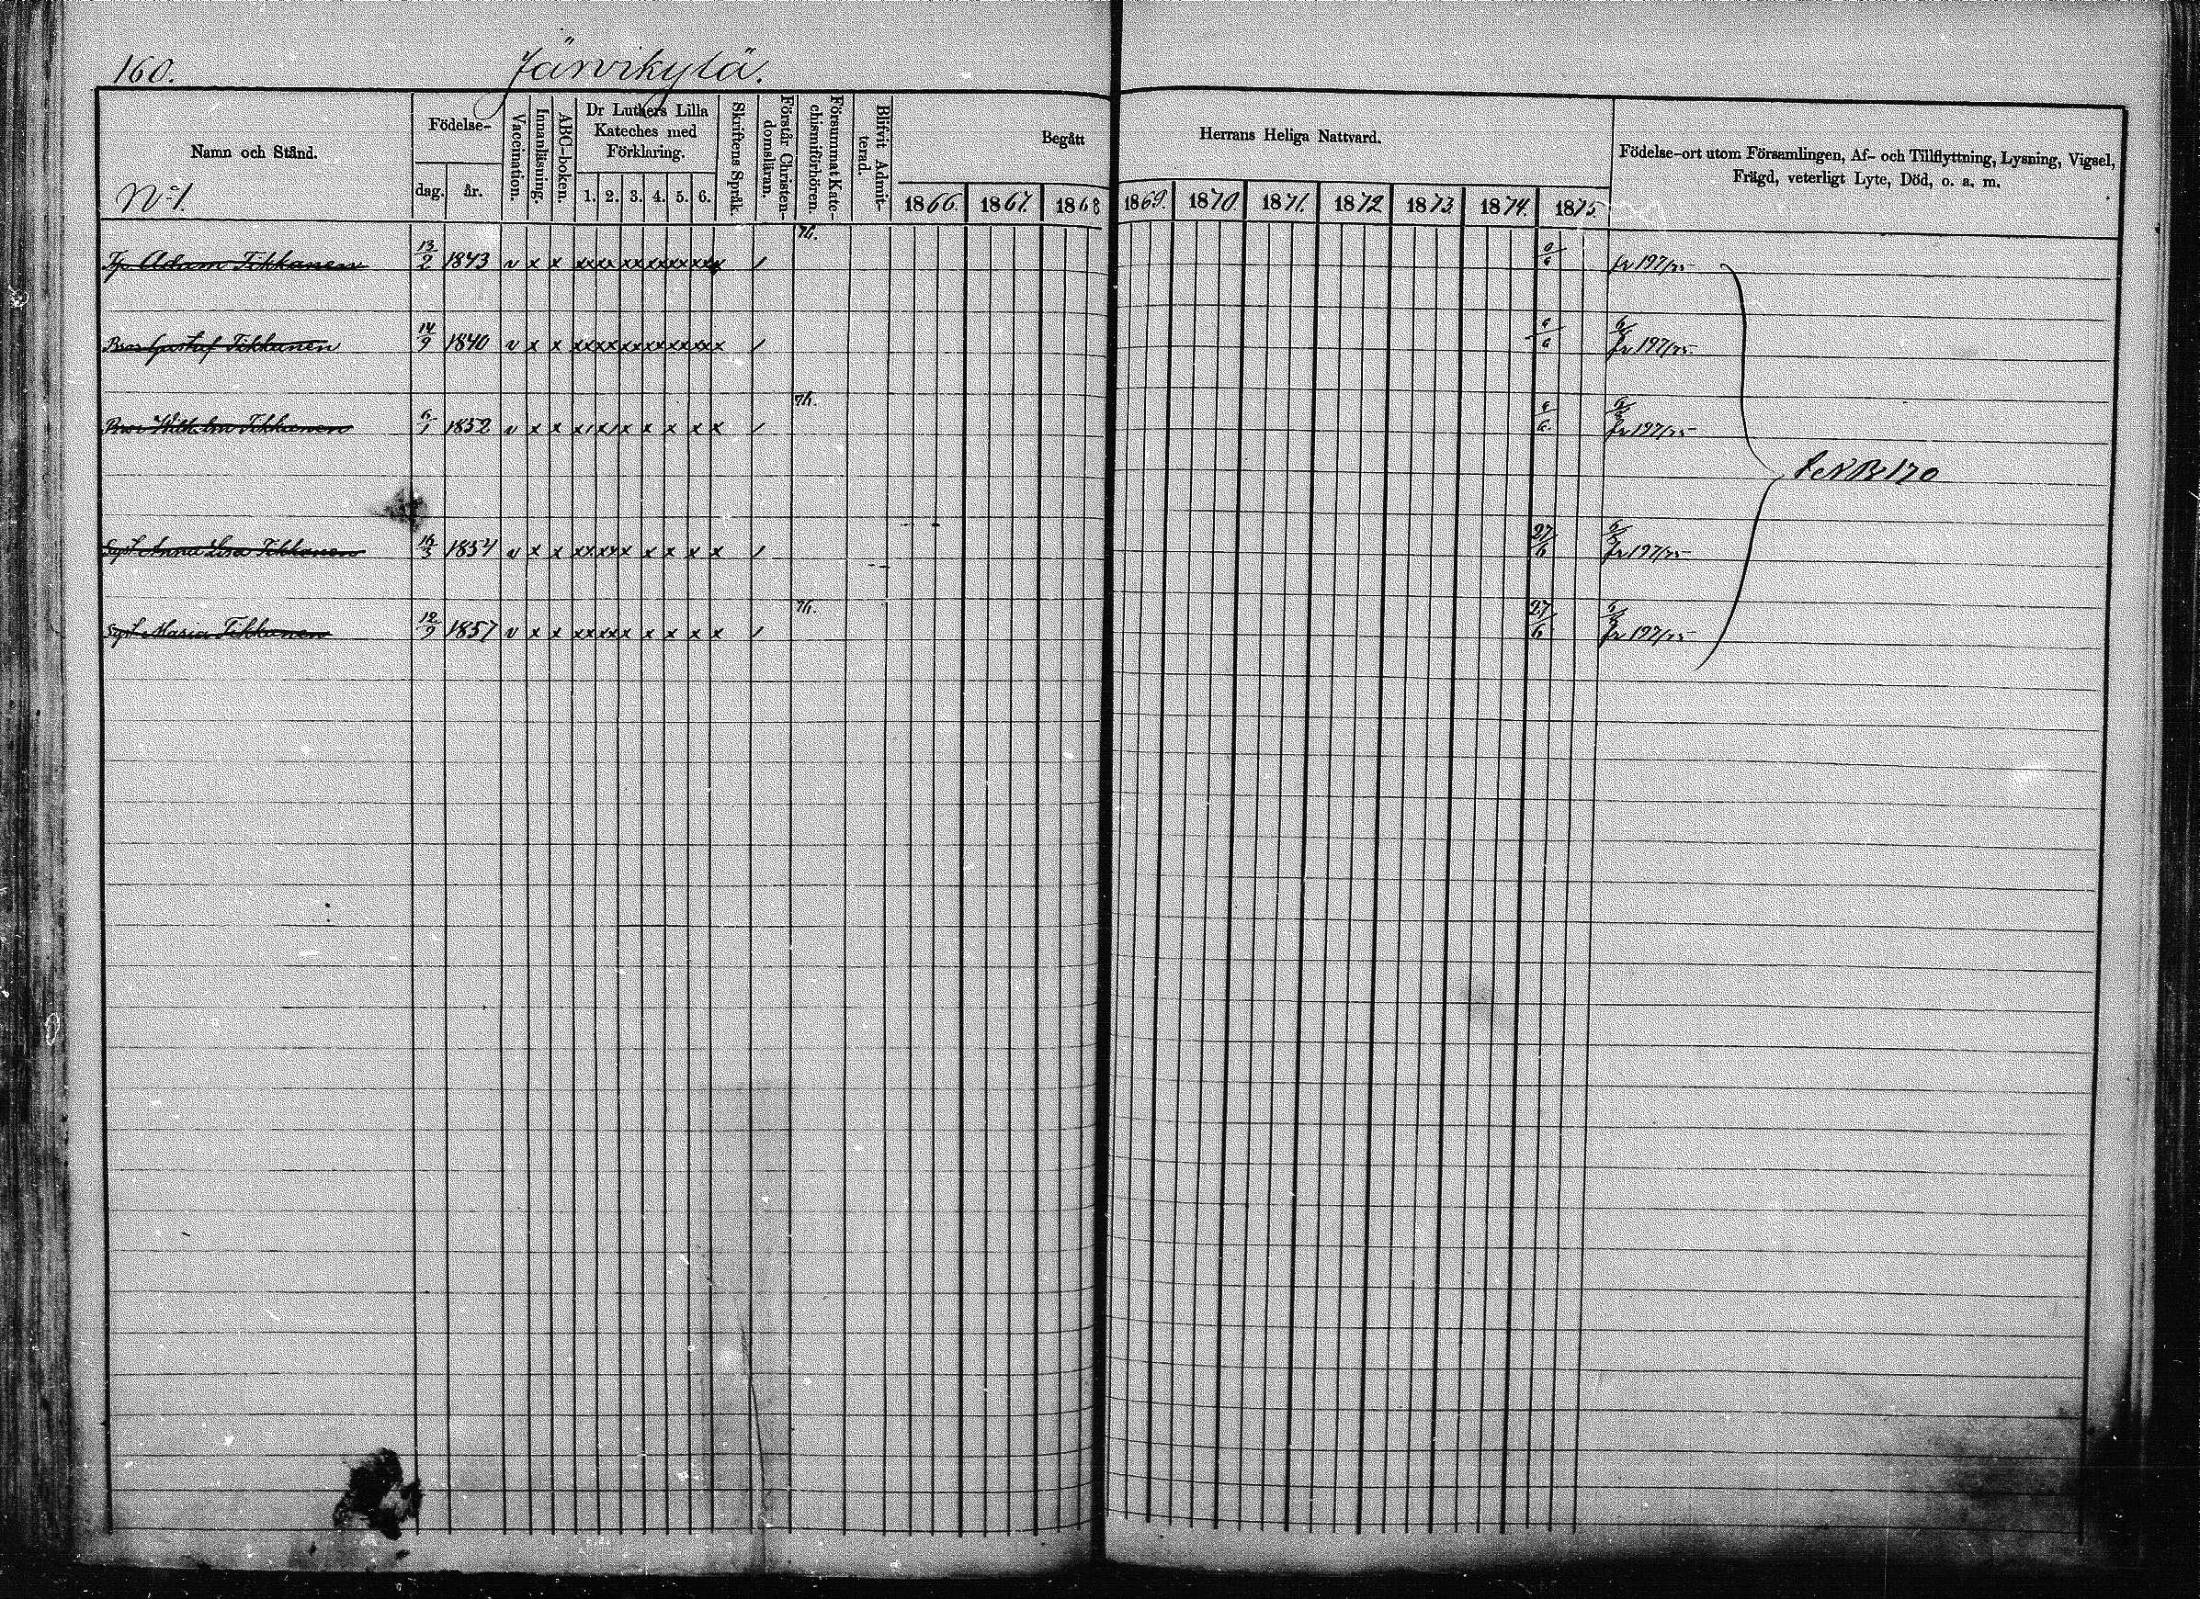 160. Järvikylä.
Namn och Stånd.
No 1.
Födelse-
dag. år.
Vaccination.
Innanläsning.
ABC-boken.
Dr Luthers Lilla
Kateches med
Förklaring.
1. 2. 3. 4. 5. 6.
Skriftens Språk.
Förstår Christen-
domsläran.
Försummat Kate-
chismiförhören.
Blifvit Admit-
terad.
Begått Herrans Heliga Nattvard.
1866. 1867. 1868 1869. 1870 1871. 1872 1873 1874. 1875
Födelse-ort utom Församlingen, Af- och Tillflyttning, Lysning, Vigsel,
Frägd, veterligt Lyte, Död, o. a. m.
Adam Tikkanen 13/2 1843 v x x fr 197/75
Bror Gustaf Tikkanen 14/9 1840 v x x fr 197/75
Bror Wilhelm Tikkanen 6/1 1852 v x x fr 197/75
170
Syst Anna Lisa Tikkanen 16/3 1854 v x x 27/6 fr 197/75
Syst Maria Tikkanen 12/9 1857 v x x 27/6 fr 197/75